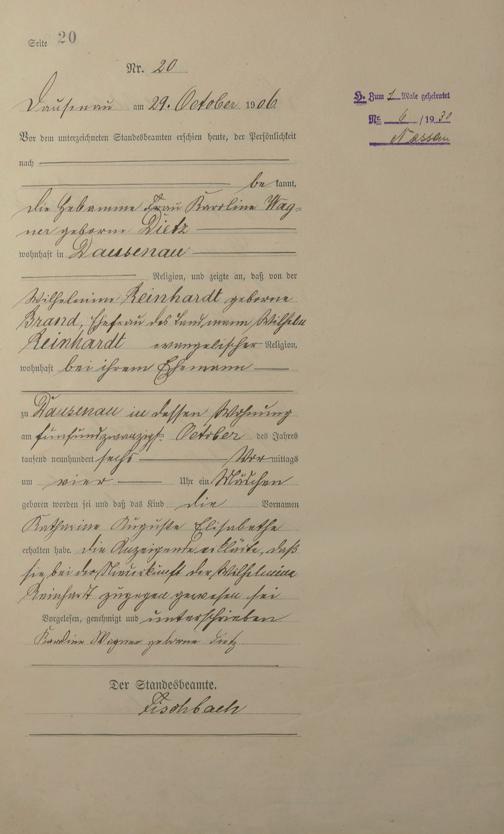 Seite 20
Nr. 20
Dausenau am 29. October 1906
H. Zum 1 Male geheiratet
Nr. 6 / 1930
Nassau
Vor dem unterzeichneten Standesbeamten erschien heute, der Persönlichkeit
nach
be kannt,
die Hebamme Frau Karoline Wag-
ner geborne Dietz
wohnhaft in Dausenau
Religion, und zeigte an, daß von der
Wilhelmine Reinhardt geborne
Brand, Ehefrau des Wilhelm
Reinhardt evangelischer Religion,
wohnhaft bei ihrem Ehemann
zu Dausenau in dessen Wohnung
am fünfundzwanzigst. October des Jahres
tausend neunhundert sechs Vor mittags
um vier Uhr ein Mädchen
geboren worden sei und daß das Kind die Vornamen
Katharine Auguste Elisabethe
erhalten habe. Die Anzeigende erklärte, daß
sie bei der Niederkunft der Wilhelmine
Reinhart zugegen gewesen sei
Vorgelesen, genehmigt und unterschrieben
Karoline Wagner geborne Dietz
Der Standesbeamte.
Fischbach